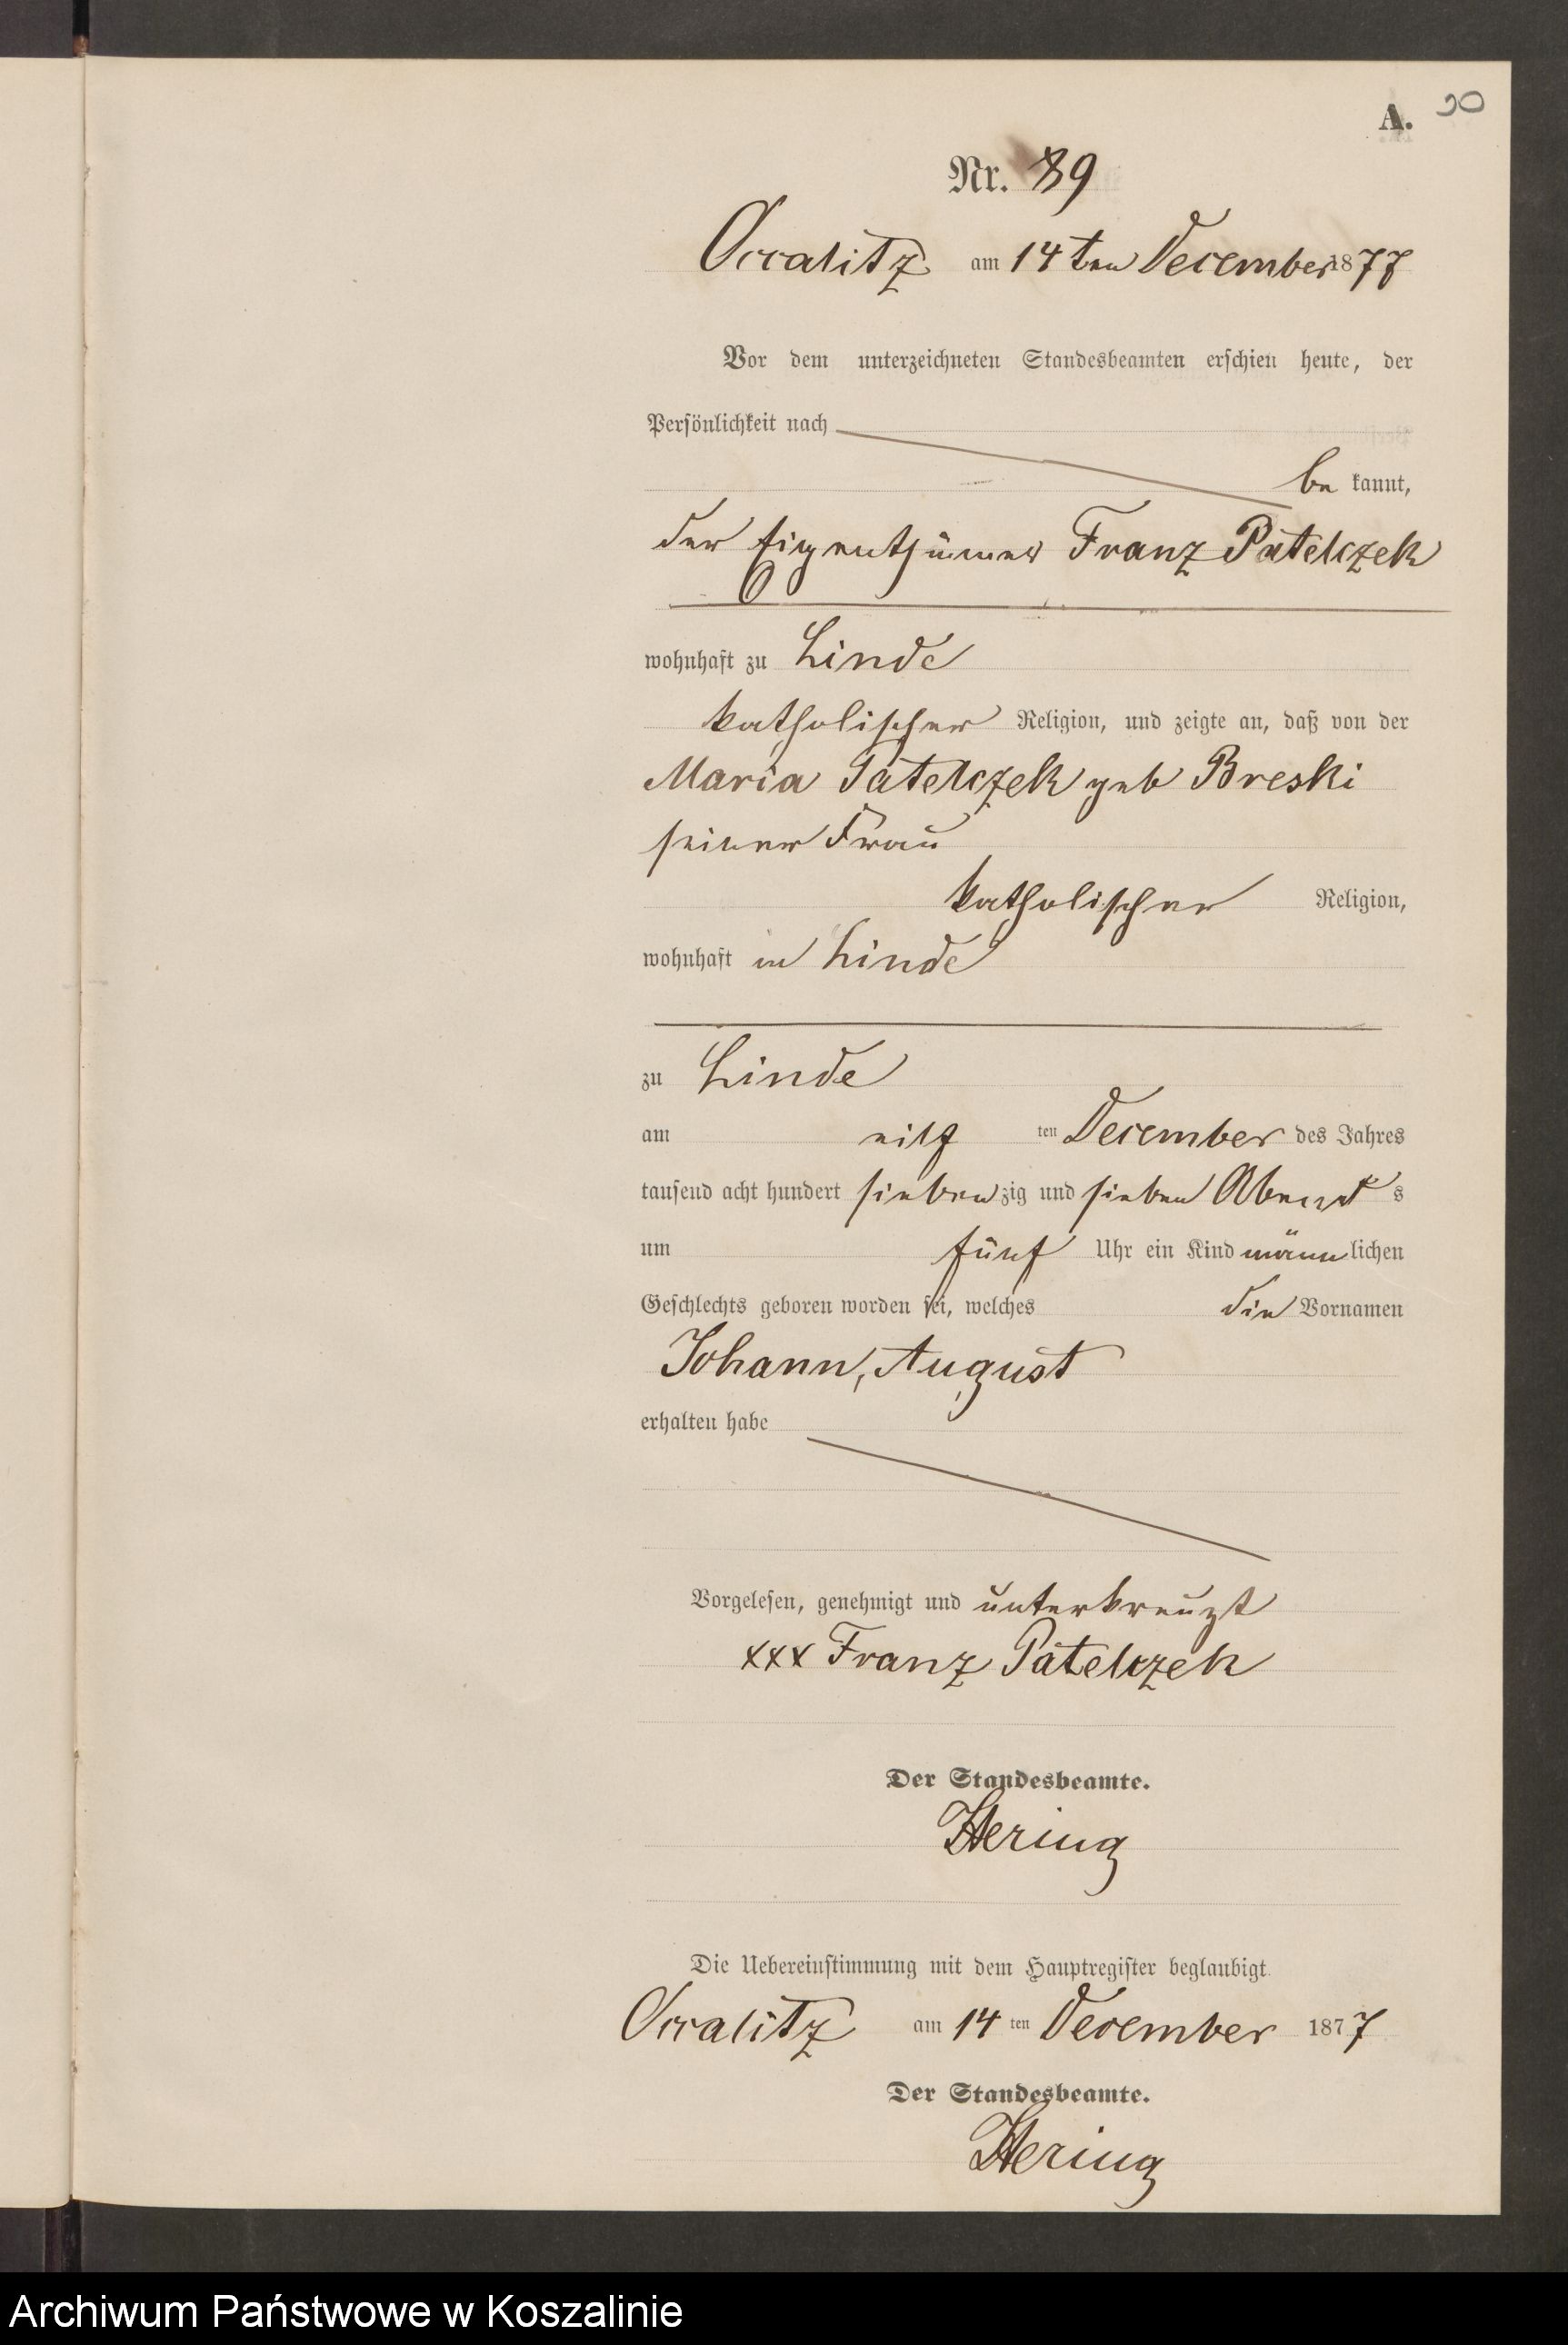 A. 90
Nr. 89
Occalitz am 14ten December 1877
Vor dem unterzeichneten Standesbeamten erschien heute, der
Persönlichkeit nach
be kannt,
der Eigenthümer Franz Patelczek
wohnhaft zu Linde
katholischer Religion, und zeigte an, daß von der
Maria Patelczek geb Breski
seiner Frau
katholischer Religion,
wohnhaft in Linde
zu Linde
am eilf ten December des Jahres
tausend acht hundert siebenzig und sieben Abend s
um fünf Uhr ein Kind männlichen
Geschlechts geboren worden sei, welches die Vornamen
Johann, August
erhalten habe
Vorgelesen, genehmigt und unterkreuzt
xxx Franz Patelczek
Der Standesbeamte.
Hering
Die Uebereinstimmung mit dem Hauptregister beglaubigt.
Occalitz am 14 ten December 1877
Der Standesbeamte.
Hering
Archiwum Państwowe w Koszalinie